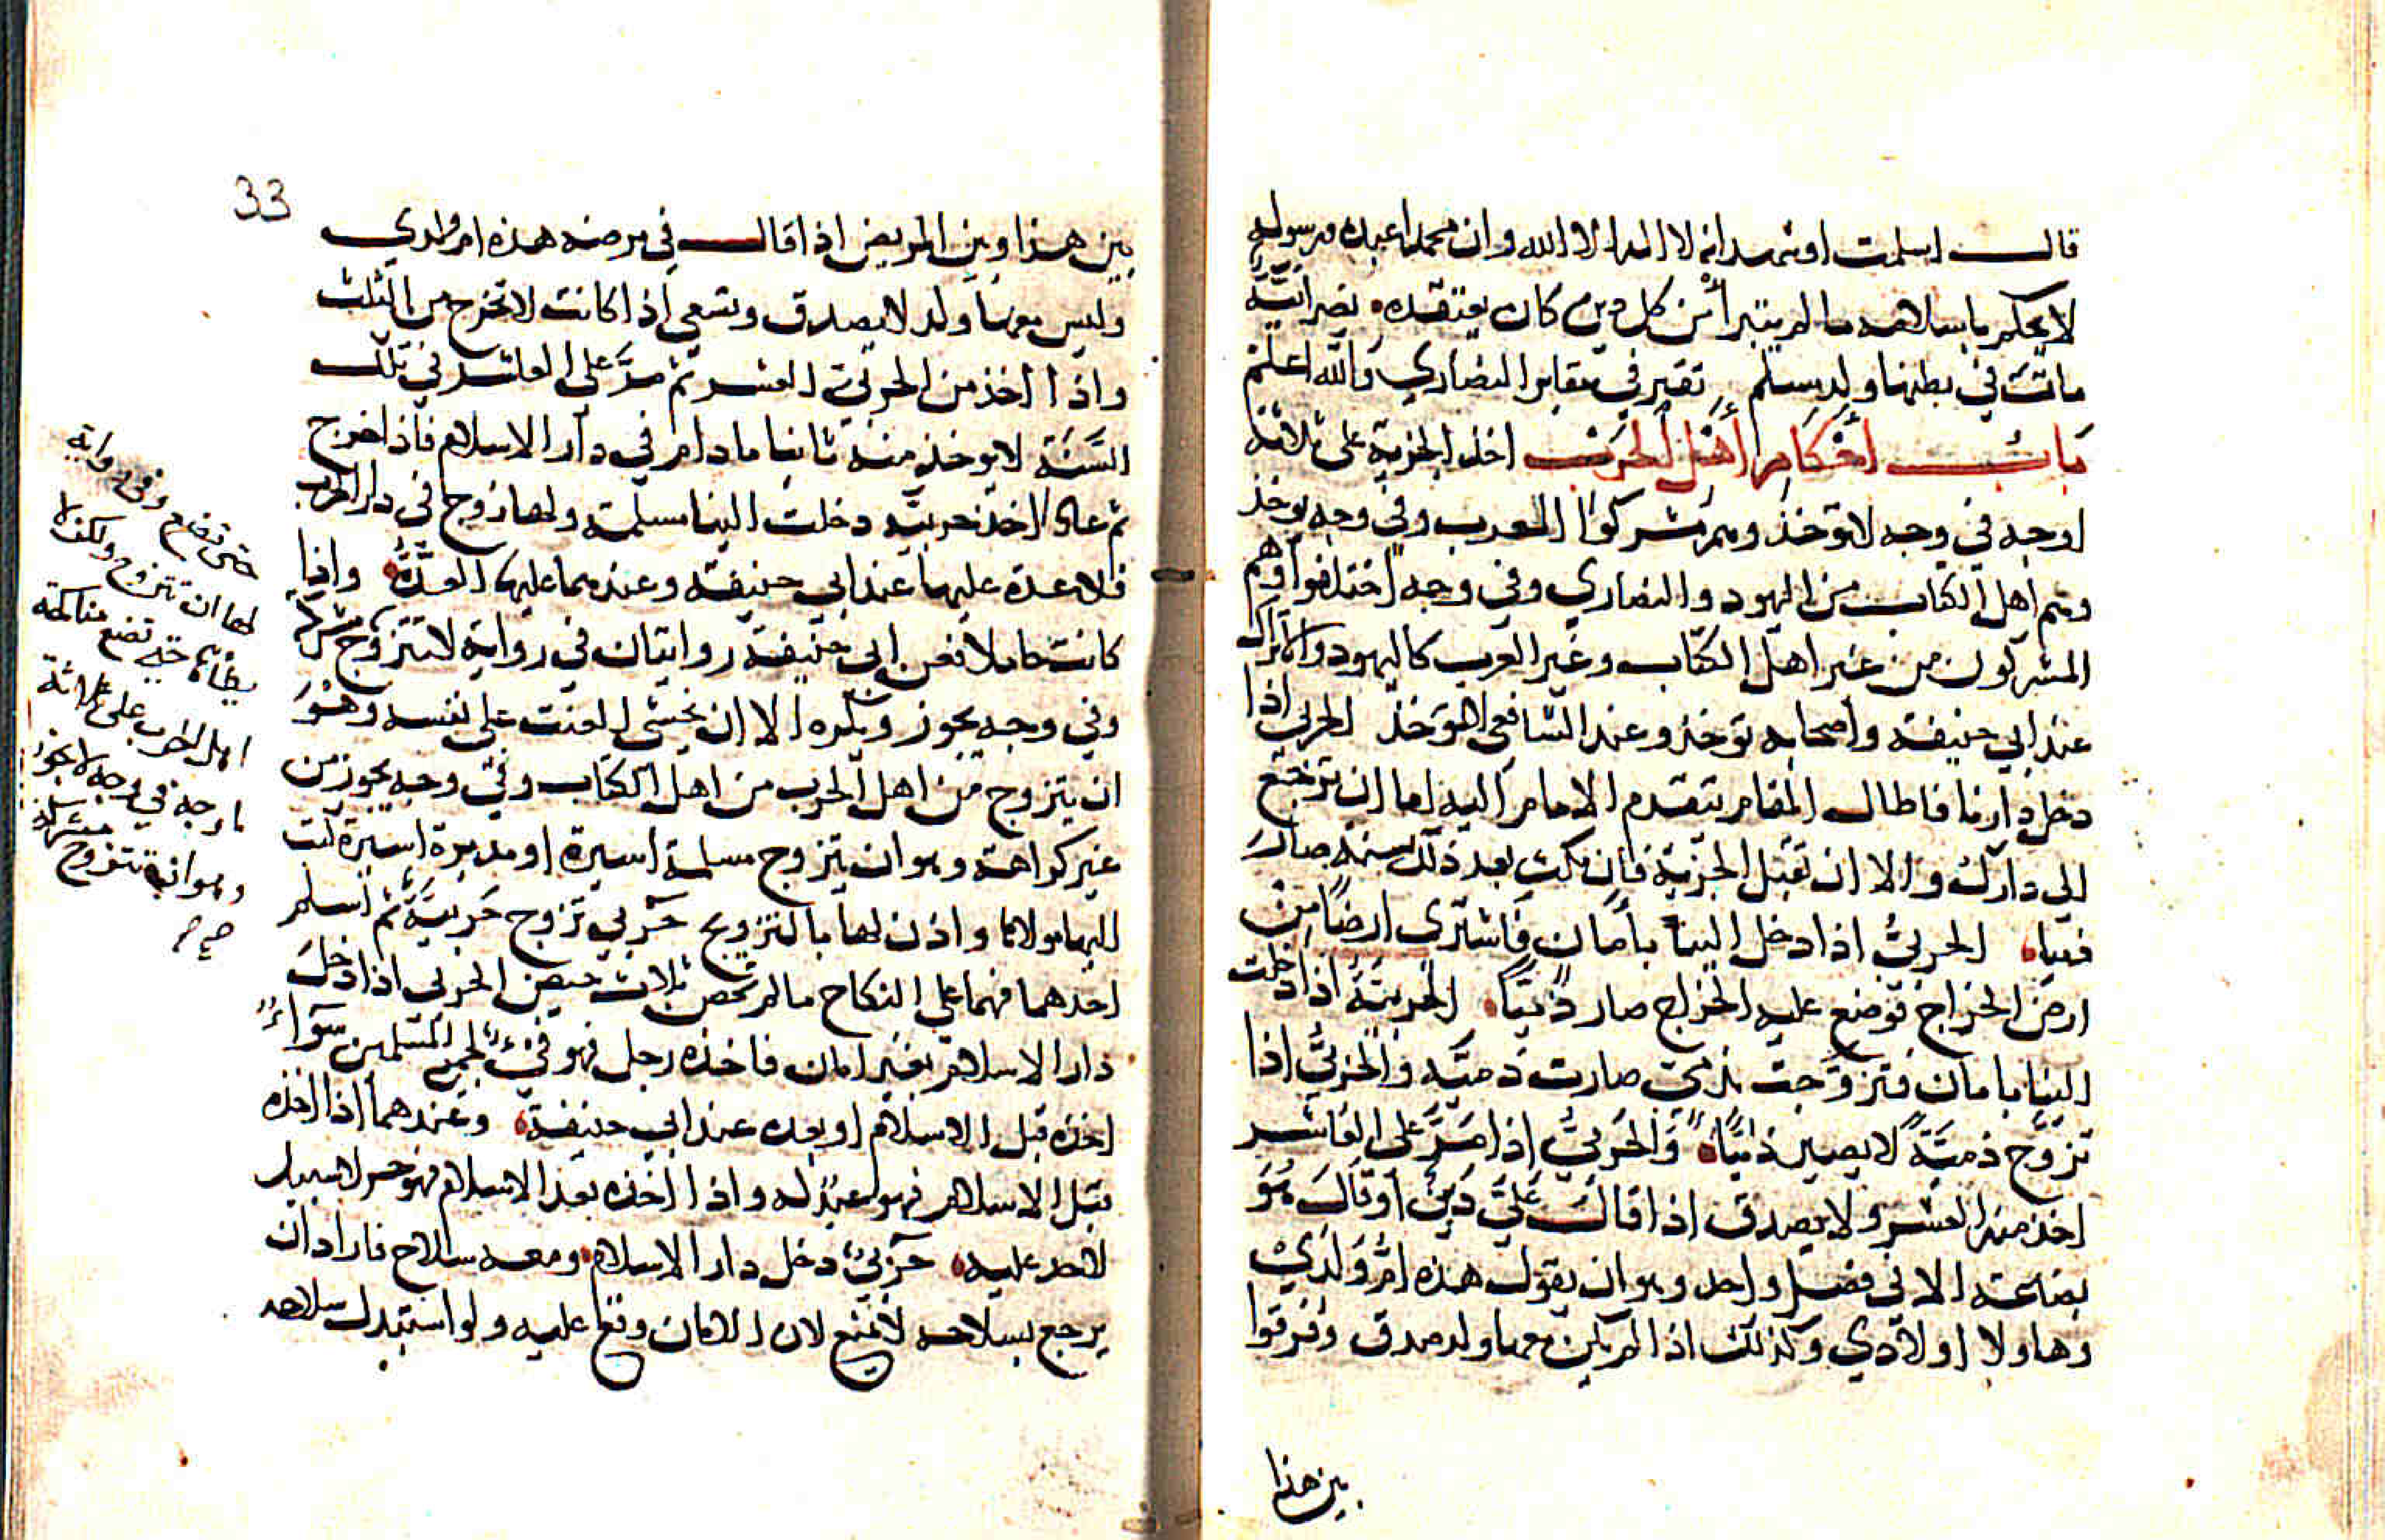 قال اسلمت او شهد انه لا اله الا الله وان محمدا عبده ورسوله
لا يحكم باسلامه ما لم يتبرأ من كل دين كان يعتقده نصرانية
ماتت في بطنها ولد مسلم تقبر في مقابر النصارى والله اعلم
باب احكام اهل الحرب اخذ الجزية على ثلاثة
اوجه في وجه لا توخذ وهم مشركوا العرب وفي وجه يوخذ
وهم اهل الكتاب من اليهود والنصارى وفي وجه اختلفوا وهم
المشركون من غير اهل الكتاب وغير العرب كالهنود والاتراك
عند ابي حنيفة واصحابه توخذ وعند الشافعي لا توخذ الحربي اذا
دخل دارنا فاطال المقام يتقدم الامام اليه اما ان ترجع
الى دارك والا ان تقبل الجزية فان مكث بعد ذلك سنة صار
فيئا الحربي اذا دخل الينا بامان فاشترى ارضا من
ارض الخراج فوضع عليه الخراج صار ذميا الحربية اذا دخلت
الينا بامان فتزوجت بذمي صارت ذمية والحربي اذا
تزوج ذمية لا يصير ذميا والحربي اذا مر على العاشر
اخذ منه العشر ولا يصدق اذا قال علي دين او قال هو
بضاعة الا في فصل واحد وهو ان يقول هذه ام ولدي
وهاولا اولادي وكذلك اذا لم يكن معها ولد صدق وفرقوا
بين هذا
33
بين هذا وبين المريض اذا قال في مرضه هذه ام ولدي
وليس معها ولد لا يصدق وتسعى اذا كانت لا تخرج من الثلث
واذا اخذ من الحربي العشر ثم مر على العاشر في تلك
السنة لا يوخذ منه ثانيا ما دام في دار الاسلام فاذا خرج
ثم عاد اخذ حربية دخلت الينا مسلمة ولها زوج في دار الحرب
فلا عدة عليها عند ابي حنيفة وعندهما عليها العدة واذا
كانت حاملا فعن ابي حنيفة روايتان في رواية لا تتزوج
وفي وجه يجوز ويكره الا ان يخشى العنت على نفسه وهو
ان يتزوج من اهل الحرب من اهل الكتاب وفي وجه يجوز من
غير كراهة وهو ان يتزوج مسلمة اسيرة او مدبرة اسيرة
اليها مولاها واذن لها بالتزويج حربي تزوج حربية ثم اسلم
احدهما فهما على النكاح ما لم تحض ثلاث حيض الحربي اذا دخل
دار الاسلام بغير امان فاخذه رجل فهو فيء لجميع المسلمين سواء
اخذه قبل الاسلام او بعده عند ابي حنيفة وعندهما اذا اخذه
قبل الاسلام فهو عبد له واذا اخذه بعد الاسلام فهو حر لا سبيل
لاحد عليه حربي دخل دار الاسلام ومعه سلاح فاراد ان
يرجع بسلاحه لا يمنع لان الامان وقع عليه ولو استبدل سلاحه
حتى تضع وفي رواية
لها ان تتزوج ولكن لا
يطأها حتى تضع مناكحة
اهل الحرب على ثلاثة
اوجه في وجه لا يجوز
وهو ان يتزوج مشركة
صح